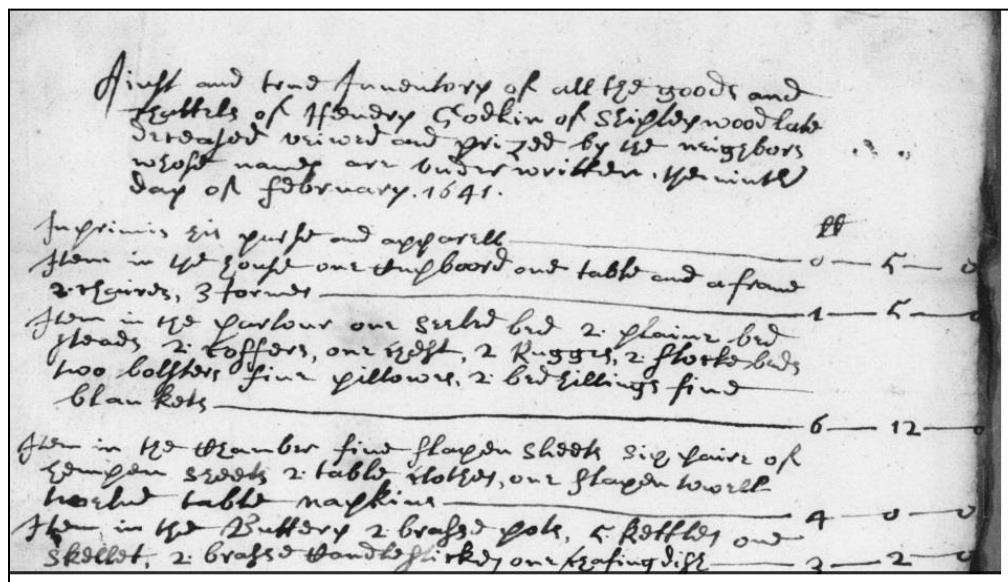 A just and true Inventory of all the goods and
Chattels of Hendry Godkin of Shipley wood late
deceased veiwed and prized by the neighbors
whose names are under written, the ninth
day of February. 1641.
Inprimis his purse and apparell 0 5 0
Item in the house one Cupboord one table and a frame
2 chaires, 3 formes 1 5 0
Item in the parlour one seeled bed 2 plaine bed
steads 2 coffers, one chest, 2 Rugges, 2 flocke beds
two bolsters five pillowes, 2 bedhillings five
blankets 6 12 0
Item in the Chamber five flaxen sheets six paire of
hempen sheets 2 table clothes, one flaxen towell
twelve table napkins 4 0 0
Item in the Buttery 2 brasse pots, 5 kettles one
skellet, 2 brasse Candlestickes one chafing dish 3 2 0